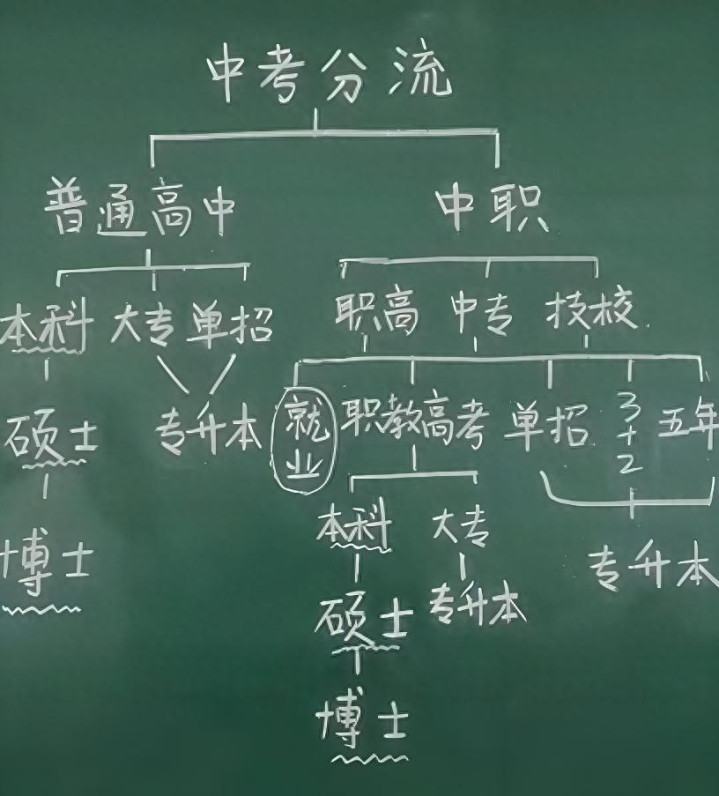 中考分流
普通高中 中职
本科 大专 单招 职高 中专 技校
硕士 专升本 就业 职教高考 单招 3+2 五年
本科 大专
博士 专升本
硕士 专升本
博士